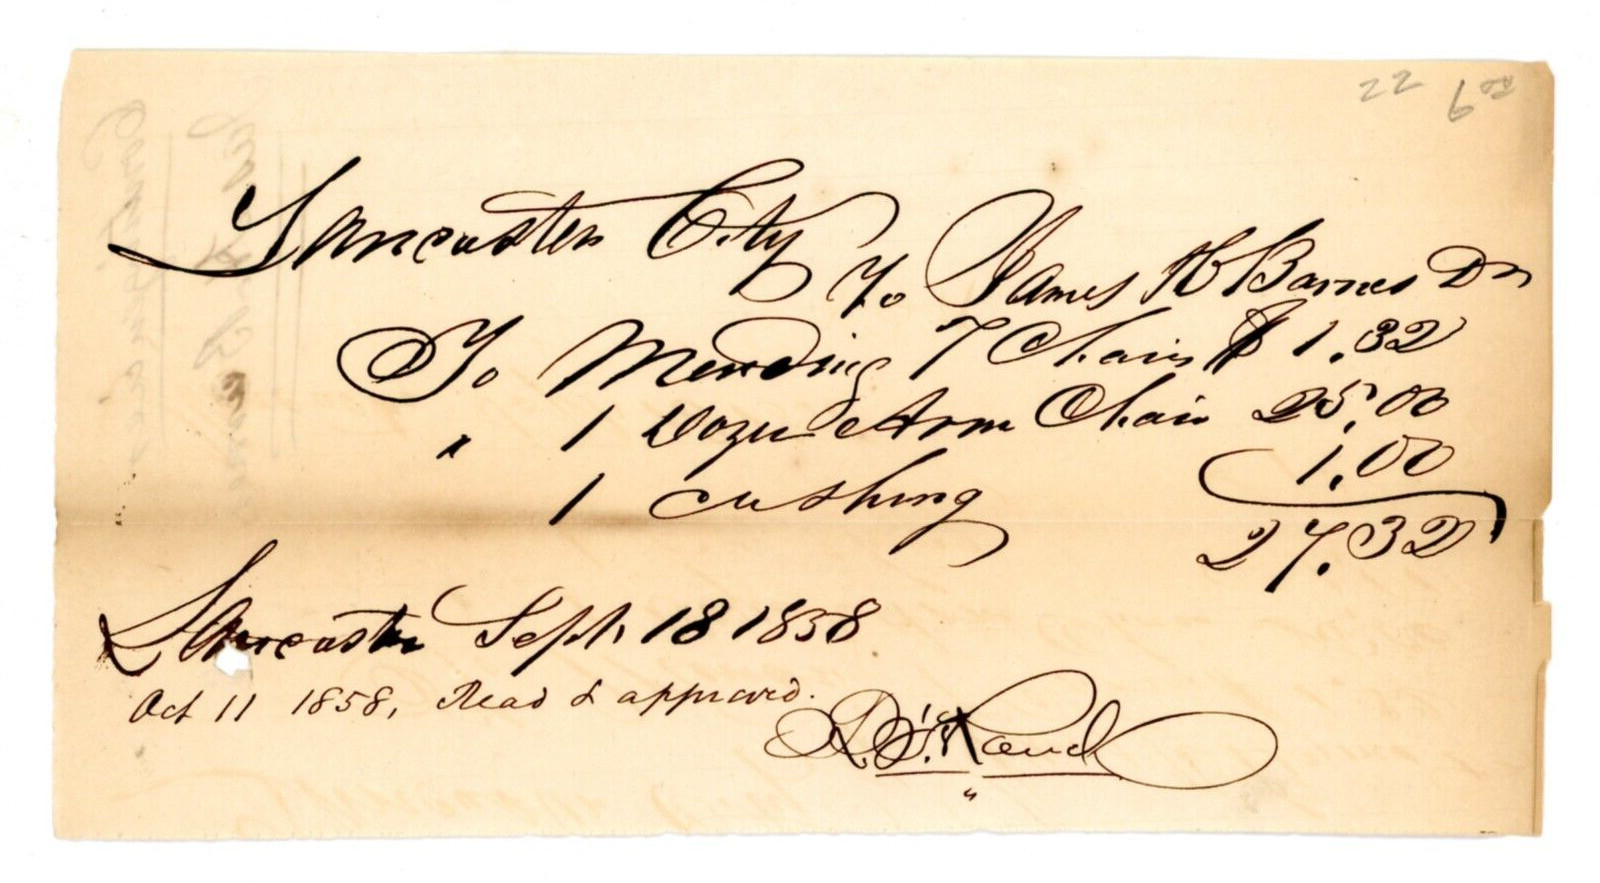 22 6
Lancaster City
To James H Barnes Dr
To Mending 7 Chairs $ 1.32
" 1 Dozen Arm Chair 25.00
1 cushing 1.00
27.32
Lancaster Sept. 18 1858
Oct 11 1858, Read & approved.
Rand